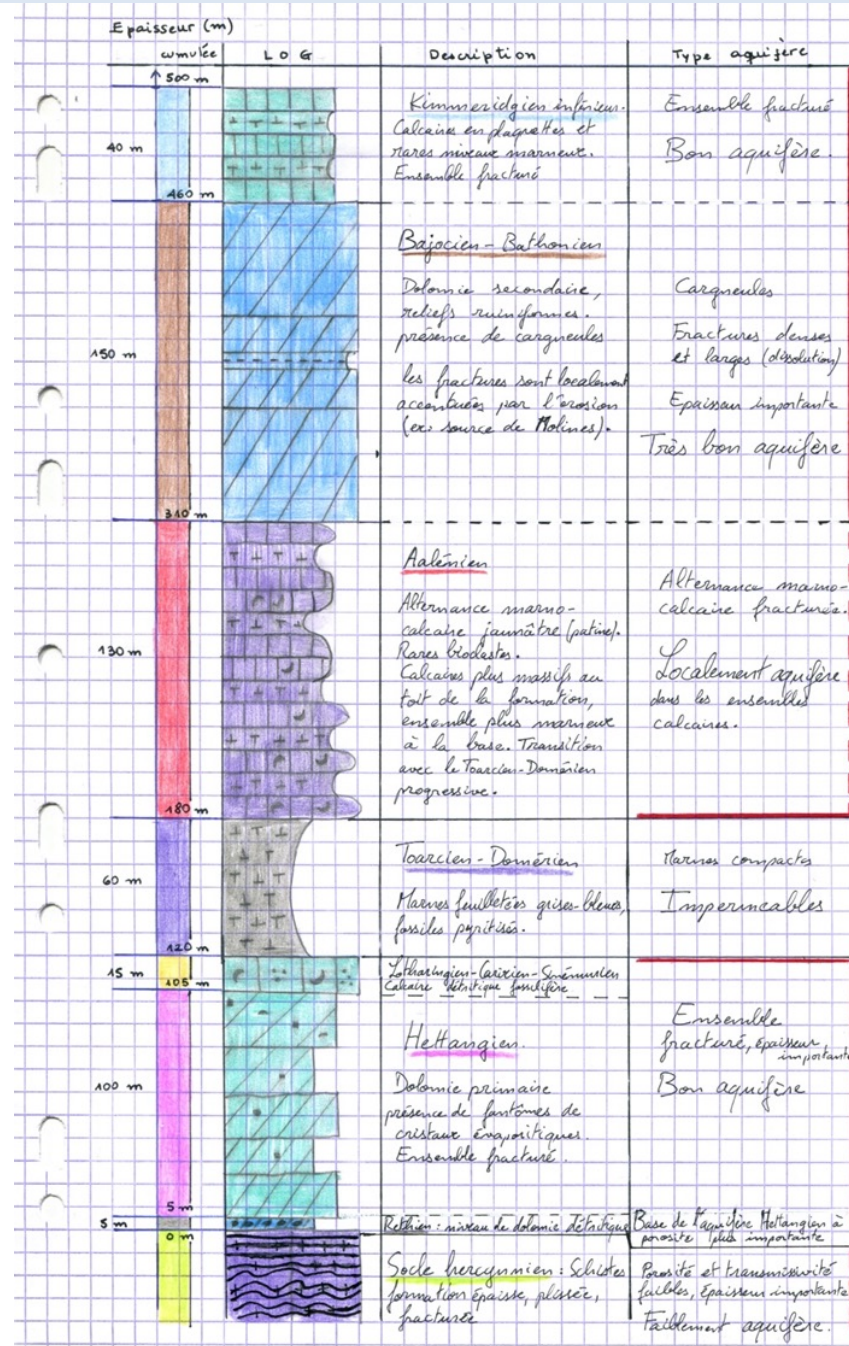 Epaisseur (m)
cumulée
LOG
Description
Type aquifère
↑ 500 m
40 m
460 m
Kimmeridgien inférieur.
Calcaires en plaquettes et
rares niveaux marneux.
Ensemble fracturé
Ensemble fracturé
Bon aquifère.
150 m
310 m
Bajocien - Bathonien
Dolomie secondaire,
reliefs ruiniformes.
présence de cargneules
les fractures sont localement
accentuées par l'érosion
(ex: source de Molines).
Cargneules
Fractures denses
et larges (dissolution)
Epaisseur importante
Très bon aquifère
130 m
180 m
Aalénien
Alternance marno-
calcaire jaunâtre (patine).
Rares bioclastes.
Calcaires plus massifs au
toit de la formation,
ensemble plus marneux
à la base. Transition
avec le Toarcien-Domérien
progressive.
Alternance marno-
calcaire fracturée.
Localement aquifère
dans les ensembles
calcaires.
60 m
120 m
Toarcien - Domérien
Marnes feuilletées grises-bleues,
fossiles pyritisés.
Marnes compactes
Imperméables
15 m
105 m
Lotharingien-Carixien-Sinémurien
Calcaire détritique fossilifère
100 m
5 m
Hettangien.
Dolomie primaire
présence de fantômes de
cristaux évaporitiques.
Ensemble fracturé.
Ensemble
fracturé, épaisseur
importante
Bon aquifère
5 m
0 m
Rethien : niveau de dolomie détritique
Base de l'aquifère Hettangien à
porosité plus importante
Socle hercynnien : Schistes
formation épaisse, plissée,
fracturée
Porosité et transmissivité
faibles, épaisseur importante
Faiblement aquifère.